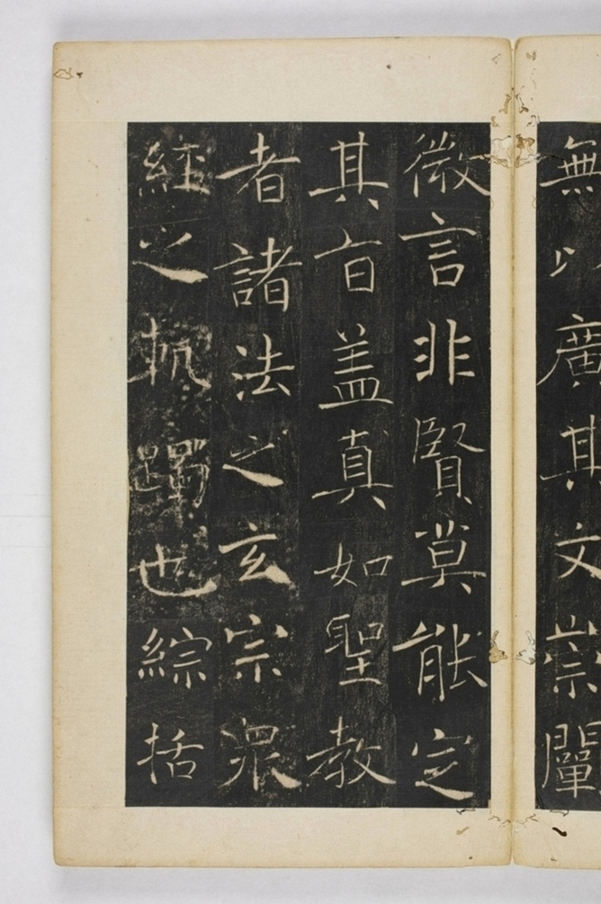 無以廣其文崇闡
微言非賢莫能定
其旨盖真如聖教
者諸法之玄宗眾
經之軌躅也綜括